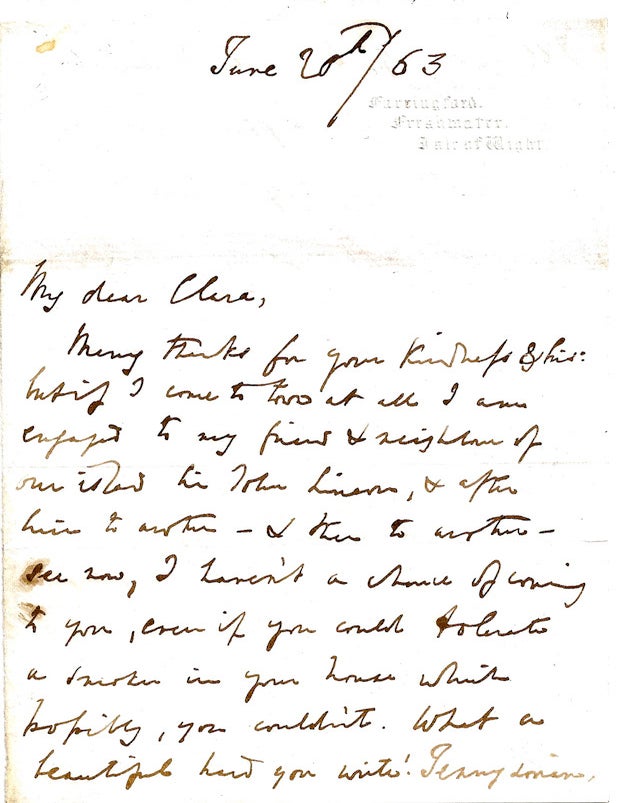 June 20th/63
Farringford.
Freshwater.
Isle of Wight.
My dear Clara,
Many thanks for your kindness & his:
but if I come to town at all I am
engaged to my friend & neighbour of
our island Sir John Simeon, & after
him to another – & then to another –
see now, I haven't a chance of coming
to you, even if you could tolerate
a smoker in your house which
possibly, you couldn't. What a
beautiful hand you write! Tennysonian,